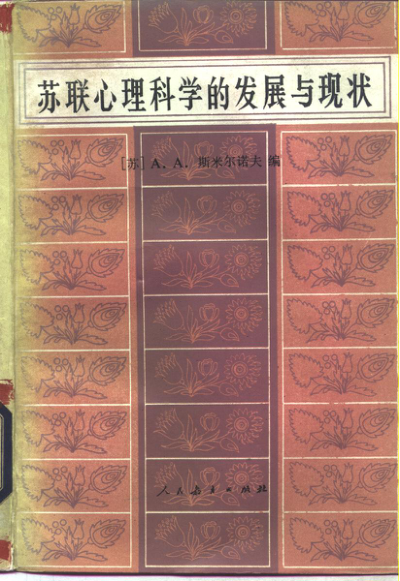 苏联心理科学的发展与现状
[苏] A. A. 斯米尔诺夫 编
人民教育出版社